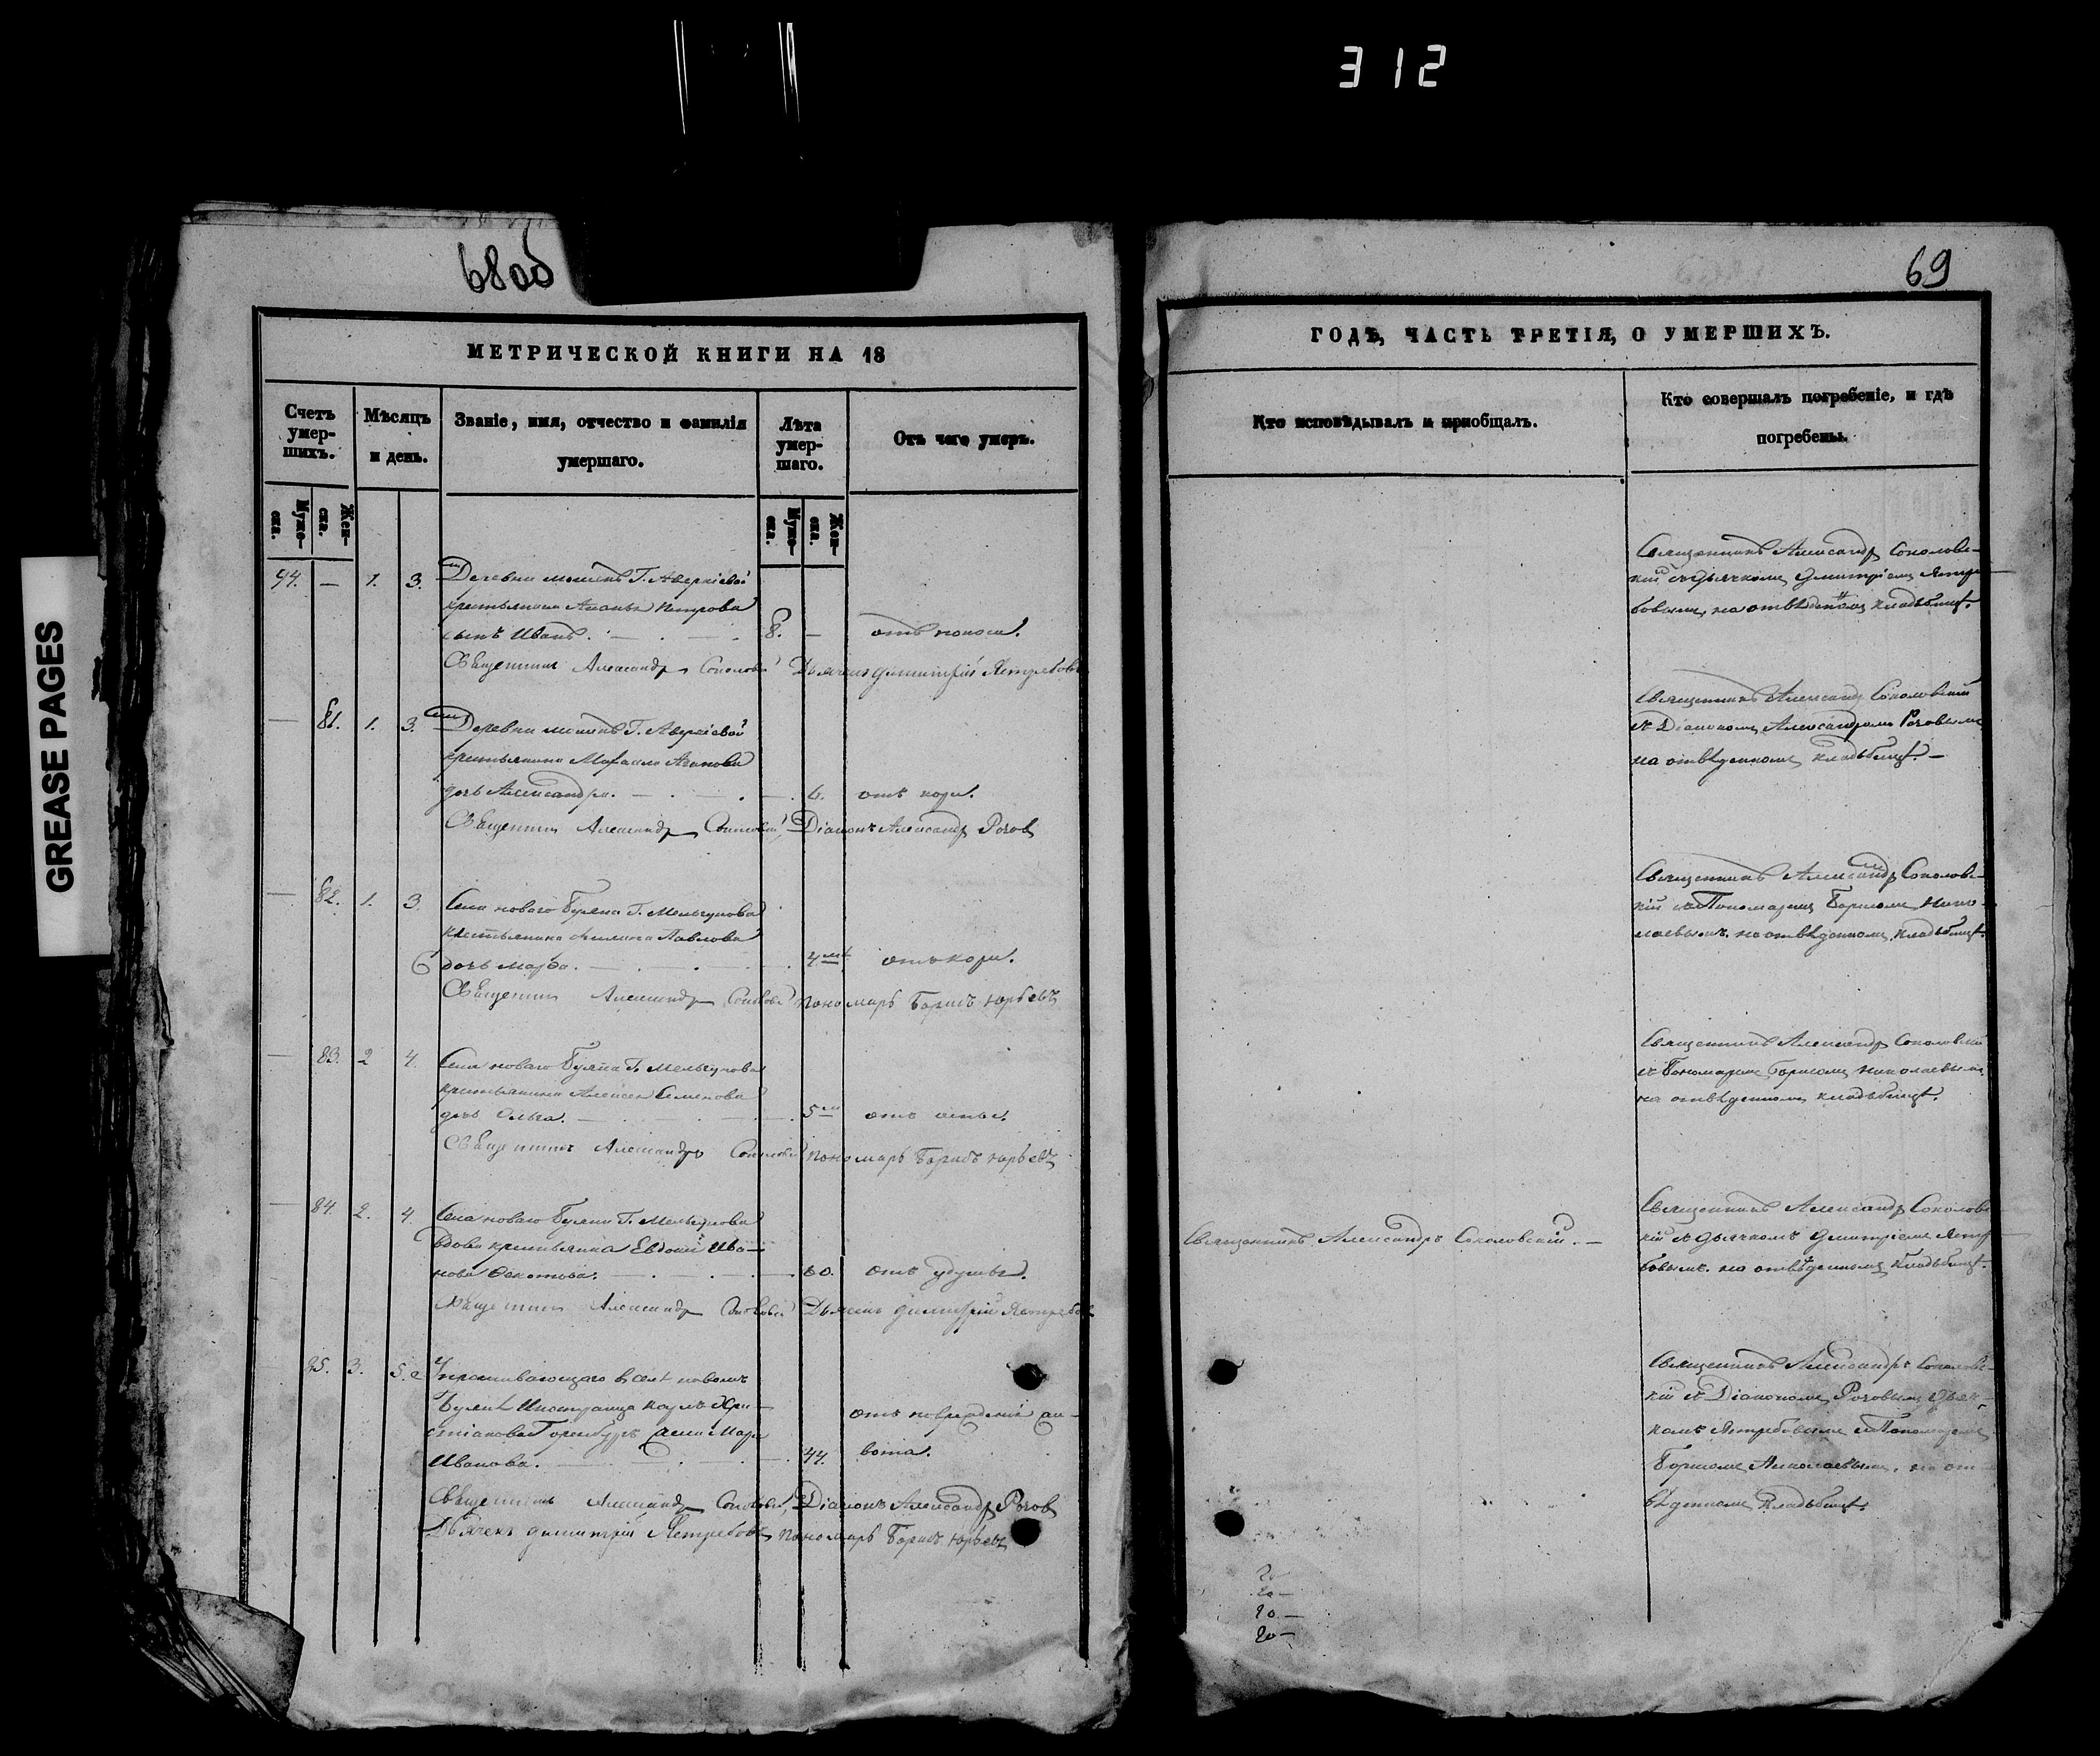 312
GREASE PAGES
68об
МЕТРИЧЕСКОЙ КНИГИ НА 18
Счетъ умер-
шихъ.
Мѣсяцъ
и день.
Званіе, имя, отчество и фамилія
умершаго.
Лѣта
умер-
шаго.
Отъ чего умеръ.
Муже-
ска.
Жен-
ска.
Муже-
ска.
Жен-
ска.
94. — 1. 3. Деревни Г. Аверкіевой
крестьянина Петрова
сынъ Иванъ. 8. — отъ поноса.
Священникъ Александръ Соколовскій Дьячекъ Димитрій Ястребовъ
— 81. 1. 3. Деревни Г. Аверкіевой
крестьянина Михаила
дочь Александра. 6. отъ кори.
Священникъ Александръ Соколовскій Діаконъ Александръ Розовъ
— 82. 1. 3. Села новаго Буяна Г. Мельгунова
крестьянина Павлова
дочь Марѳа. 4 отъ кори.
Священникъ Александръ Соколовскій пономарь Борисъ Юрьевъ
— 83. 2 4. Села новаго Буяна Г. Мельгунова
крестьянина Алексея Семенова
дочь Ольга. 5 отъ оспы.
Священникъ Александръ Соколовскій пономарь Борисъ Юрьевъ
— 84. 2. 4. Села новаго Буяна Г. Мельгунова
вдова крестьянка Евдокія Ива-
нова 60. отъ удушья.
Священникъ Александръ Соколовскій Дьячекъ Димитрій Ястребовъ
85. 3. 5. въ селѣ новомъ
Буянѣ Иностранца Карла Хри-
стіанова жена Марья
Иванова. 44. отъ поврежденія жи-
вота.
Священникъ Александръ Соколовскій, Діаконъ Александръ Розовъ
Дьячекъ Димитрій Ястребовъ пономарь Борисъ Юрьевъ
69
ГОДЪ, ЧАСТЬ ТРЕТІЯ, О УМЕРШИХЪ.
Кто исповѣдывалъ и приобщалъ.
Кто совершалъ погребеніе, и гдѣ
погребены.
Священникъ Александръ Соколовс-
кій съ дьячкомъ Димитріемъ Ястре-
бовымъ, на отведенномъ кладбищѣ.
Священникъ Александръ Соколовскій
съ Діакономъ Александромъ Розовымъ
на отвѣденномъ кладбищѣ. —
Священникъ Александръ Соколовс-
кій съ Пономаремъ Борисомъ Нико-
лаевымъ. на отвѣденномъ кладбищѣ.
Священникъ Александръ Соколовскій
съ Пономаремъ Борисомъ Николаевымъ
на отвѣденномъ кладбищѣ.
Священникъ Александръ Соколовскій. —
Священникъ Александръ Соколовс-
кій съ дьячкомъ Димитріемъ Ястре-
бовымъ. на отвѣденномъ кладбищѣ.
Священникъ Александръ Соколовс-
кій съ Діакономъ Розовымъ дьяч-
комъ Ястребовымъ и Пономаремъ
Борисомъ Николаевымъ. на от-
вѣденномъ кладбищѣ.
20
20 —
20 —
20 —